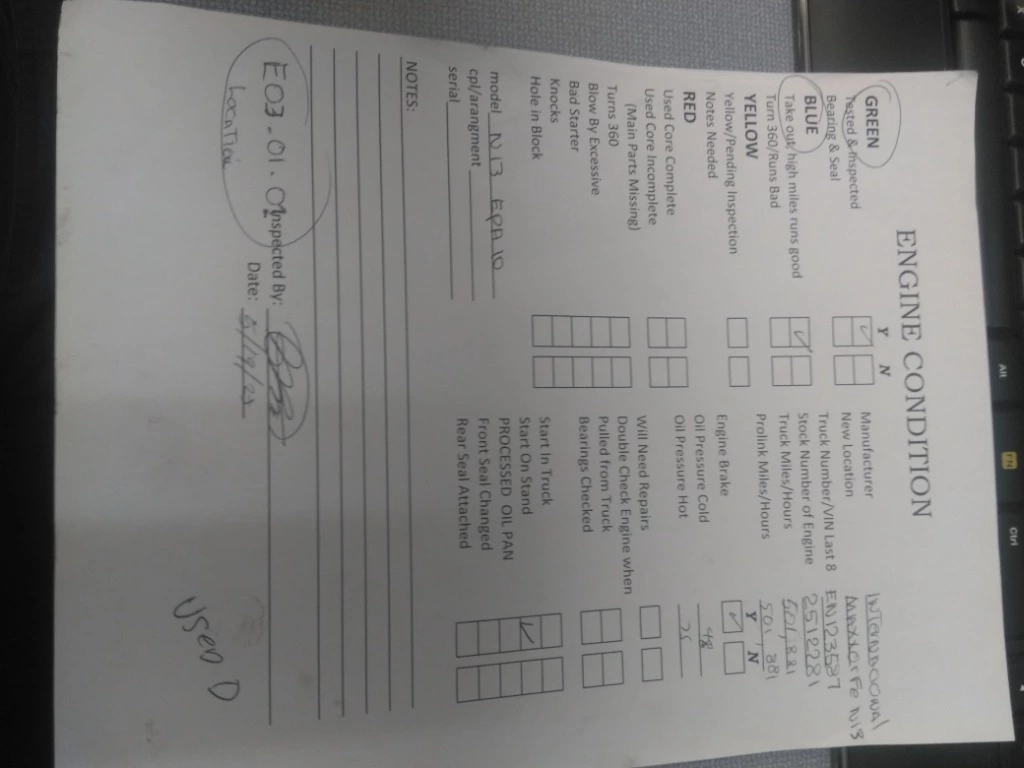 ENGINE CONDITION
Y N
GREEN
Tested & Inspected
Bearing & Seal
BLUE
Take out/high miles runs good
Turn 360/Runs Bad
YELLOW
Yellow/Pending Inspection
Notes Needed
RED
Used Core Complete
Used Core Incomplete
(Main Parts Missing)
Turns 360
Blow By Excessive
Bad Starter
Knocks
Hole in Block
model N13 EPA 10
cpl/arangment
serial
Manufacturer INTERNATIONAL
New Location MAXXFORCE N13
Truck Number/VIN Last 8 EN123587
Stock Number of Engine 2512281
Truck Miles/Hours 501,881
Prolink Miles/Hours 501,381
Y N
Engine Brake
Oil Pressure Cold 48
Oil Pressure Hot
Will Need Repairs
Double Check Engine when
Pulled from Truck
Bearings Checked
Start In Truck
Start On Stand
PROCESSED OIL PAN
Front Seal Changed
Rear Seal Attached
NOTES:
E03.01.01 Inspected By:
Location
Date:
USED